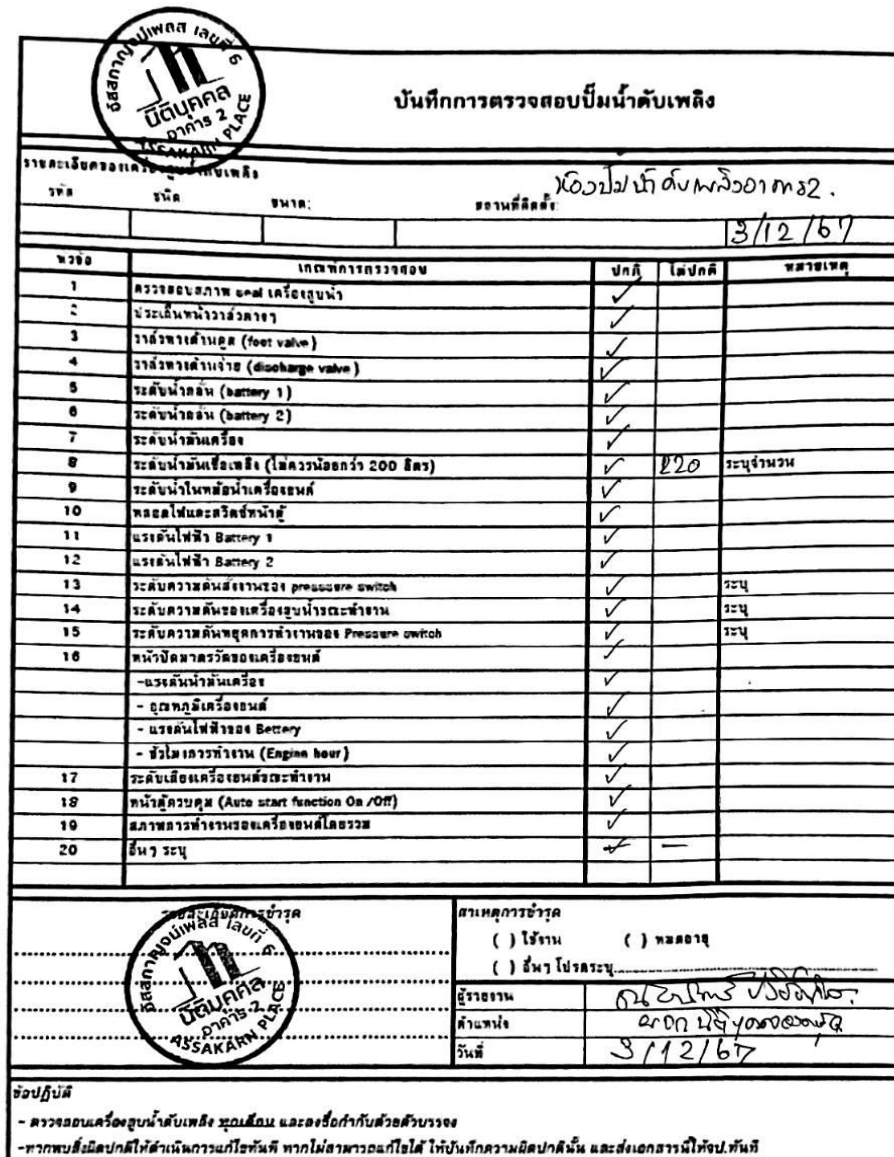 อัสสกาญจน์เพลส เลขที่ 6
นิติบุคคล
อาคาร 2
ASSAKARN PLACE
บันทึกการตรวจสอบปั๊มน้ำดับเพลิง
รายละเอียดของเครื่องสูบน้ำดับเพลิง
รหัส ชนิด ขนาด: สถานที่ติดตั้ง: ห้องปั๊มน้ำดับเพลิงอาคาร2.
3/12/67
หัวข้อ เกณฑ์การตรวจสอบ ปกติ ไม่ปกติ หมายเหตุ
1 ตรวจสอบสภาพ seal เครื่องสูบน้ำ ✓
2 ประเก็นหน้าวาล์วต่างๆ ✓
3 วาล์วทางด้านดูด (foot valve) ✓
4 วาล์วทางด้านจ่าย (discharge valve) ✓
5 ระดับน้ำกลั่น (battery 1) ✓
6 ระดับน้ำกลั่น (battery 2) ✓
7 ระดับน้ำมันเครื่อง ✓
8 ระดับน้ำมันเชื้อเพลิง (ไม่ควรน้อยกว่า 200 ลิตร) ✓ 220 ระบุจำนวน
9 ระดับน้ำในหม้อน้ำเครื่องยนต์ ✓
10 หลอดไฟและสวิตช์หน้าตู้ ✓
11 แรงดันไฟฟ้า Battery 1 ✓
12 แรงดันไฟฟ้า Battery 2 ✓
13 ระดับความดันสั่งงานของ presssure switch ✓ ระบุ
14 ระดับความดันของเครื่องสูบน้ำขณะทำงาน ✓ ระบุ
15 ระดับความดันหยุดการทำงานของ Pressure switch ✓ ระบุ
16 หน้าปัดมาตรวัดของเครื่องยนต์ ✓
-แรงดันน้ำมันเครื่อง ✓
- อุณหภูมิเครื่องยนต์ ✓
- แรงดันไฟฟ้าของ Bettery ✓
- ชั่วโมงการทำงาน (Engine hour) ✓
17 ระดับเสียงเครื่องยนต์ขณะทำงาน ✓
18 หน้าตู้ควบคุม (Auto start function On /Off) ✓
19 สภาพการทำงานของเครื่องยนต์โดยรวม ✓
20 อื่นๆ ระบุ —
รายละเอียดการชำรุด
อัสสกาญจน์เพลส เลขที่ 6
นิติบุคคล
อาคาร 2
ASSAKARN PLACE
สาเหตุการชำรุด
( ) ใช้งาน ( ) หมดอายุ
( ) อื่นๆ โปรดระบุ
ผู้รายงาน
ตำแหน่ง
วันที่ 3/12/67
ข้อปฏิบัติ
- ตรวจสอบเครื่องสูบน้ำดับเพลิง ทุกเดือน และลงชื่อกำกับด้วยตัวบรรจง
-หากพบสิ่งผิดปกติให้ดำเนินการแก้ไขทันที หากไม่สามารถแก้ไขได้ ให้บันทึกความผิดปกตินั้น และส่งเอกสารนี้ให้จป.ทันที